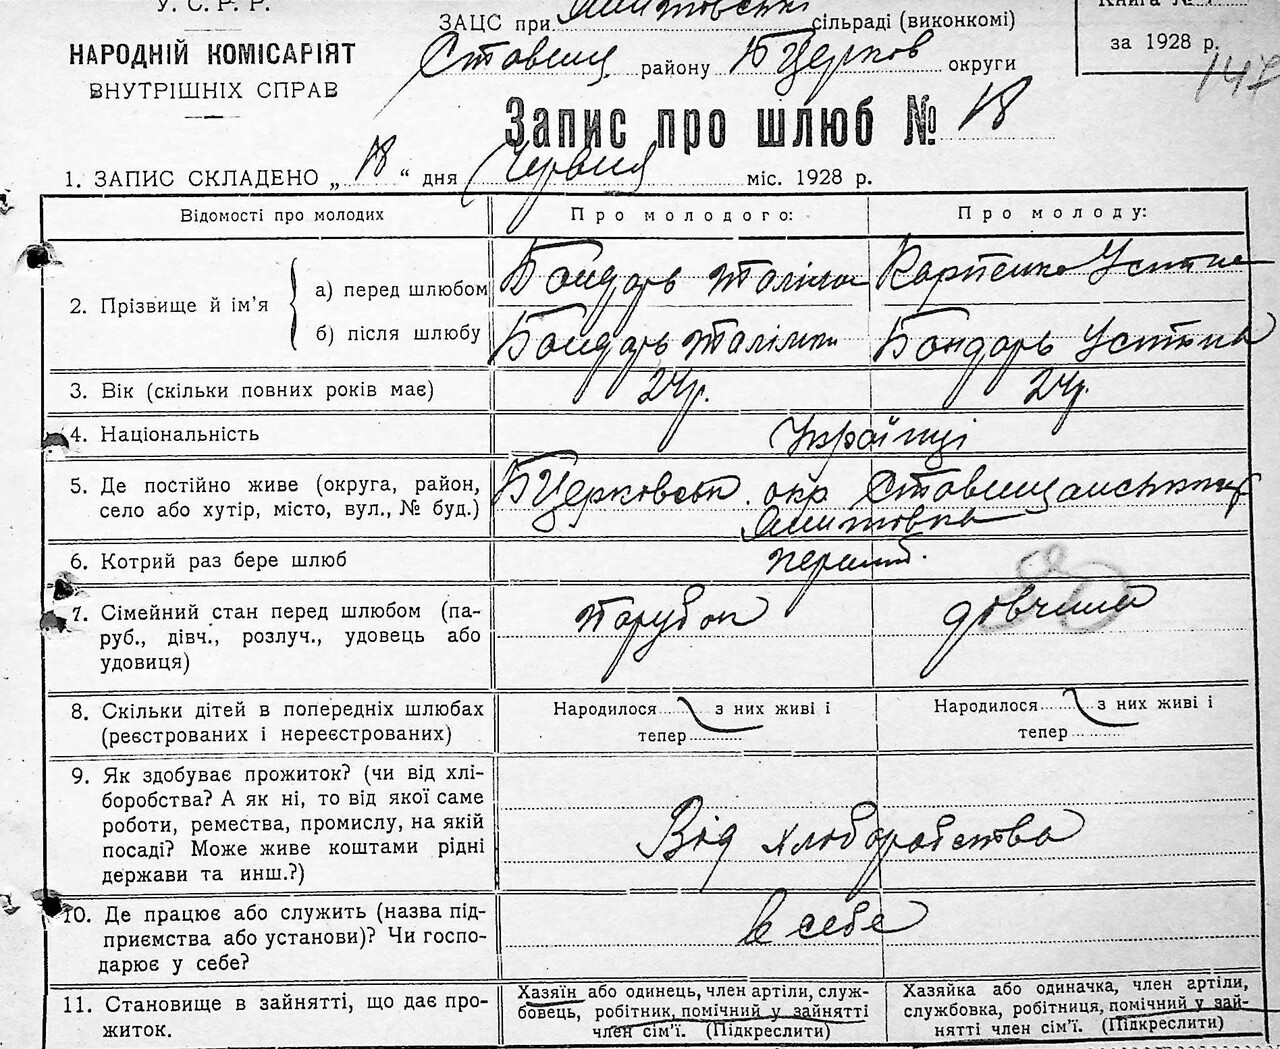 У. С. Р. Р.
НАРОДНІЙ КОМІСАРІЯТ
ВНУТРІШНІХ СПРАВ
ЗАЦС при сільраді (виконкомі)
Ставищ району Б Церков округи
Книга №
за 1928 р.
Запис про шлюб № 18
1. ЗАПИС СКЛАДЕНО „ 18 “ дня Червня міс. 1928 р.
Відомості про молодих
Про молодого:
Про молоду:
2. Прізвище й ім’я
а) перед шлюбом
Бондарь
Карпенко Устина
б) після шлюбу
Бондарь
Бондарь Устина
3. Вік (скільки повних років має)
24 р.
24 р.
4. Національність
Українці
5. Де постійно живе (округа, район,
село або хутір, місто, вул., № буд.)
БЦерковськ. окр
6. Котрий раз бере шлюб
перший.
7. Сімейний стан перед шлюбом (па-
руб., дівч., розлуч., удовець або
удовиця)
Парубок
дівчина
8. Скільки дітей в попередніх шлюбах
(реєстрованих і нереєстрованих)
Народилося з них живі і
тепер
Народилося з них живі і
тепер
9. Як здобуває прожиток? (чи від хлі-
боробства? А як ні, то від якої саме
роботи, ремества, промислу, на якій
посаді? Може живе коштами рідні
держави та инш.?)
Від хліборобства
10. Де працює або служить (назва під-
приємства або установи)? Чи госпо-
дарює у себе?
в себе
11. Становище в зайнятті, що дає про-
житок.
Хазяїн або одинець, член артіли, служ-
бовець, робітник, помічний у зайнятті
член сім’ї. (Підкреслити)
Хазяйка або одиначка, член артіли,
службовка, робітниця, помічний у зай-
нятті член сім’ї. (Підкреслити)